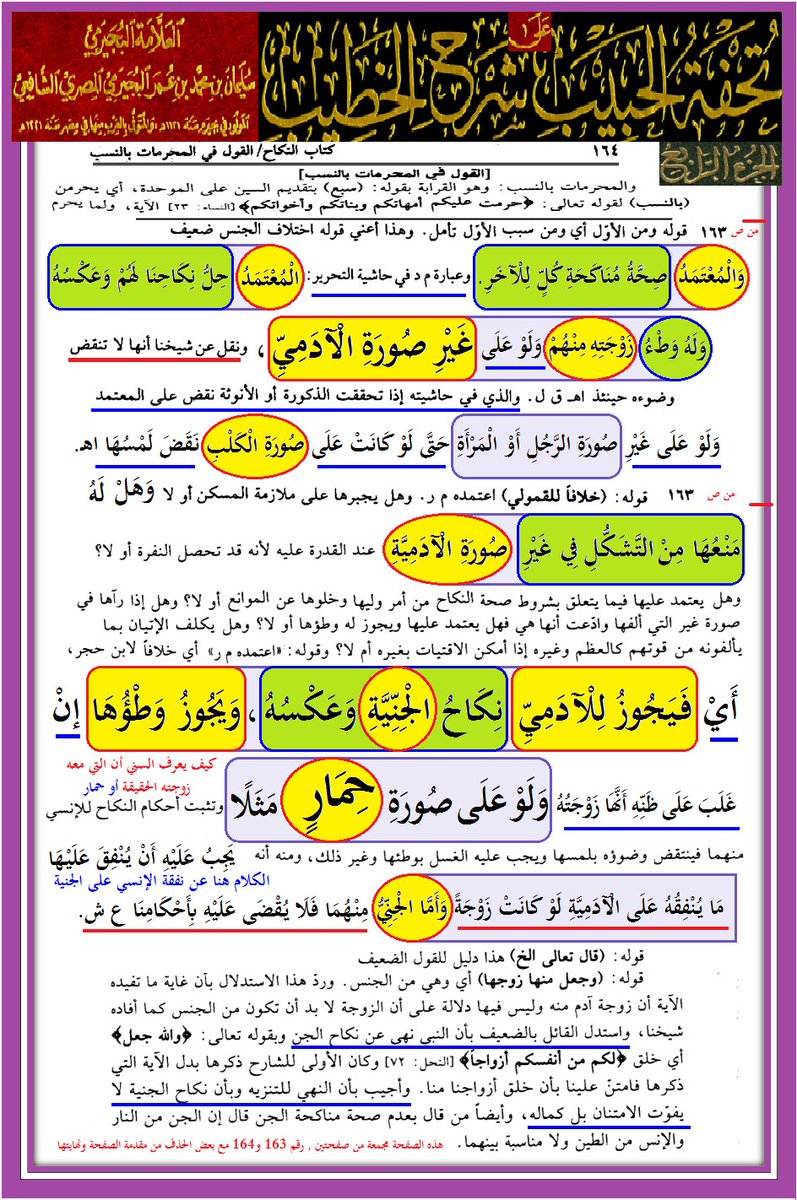 تحفة الحبيب على شرح الخطيب
العلامة البجيرمي
سليمان بن محمد بن عمر البجيرمي المصري الشافعي
الجزء الرابع
١٦٤ كتاب النكاح/ القول في المحرمات بالنسب
[القول في المحرمات بالنسب]
والمحرمات بالنسب: وهو القرابة بقوله: (سبع) بتقديم السين على الموحدة، أي يحرمن
(بالنسب) لقوله تعالى: ﴿حرمت عليكم أمهاتكم وبناتكم وأخواتكم﴾ [النساء: ٢٣] الآية، ولما يحرم
من ص ١٦٣ قوله ومن الأوّل أي ومن سبب الأوّل تأمل. وهذا أعني قوله اختلاف الجنس ضعيف
وَالْمُعْتَمَدُ صِحَّةُ مُنَاكَحَةِ كُلٍّ لِلْآخَرِ. وعبارة م د في حاشية التحرير: الْمُعْتَمَدُ حِلُّ نِكَاحِنَا لَهُمْ وَعَكْسُهُ
وَلَهُ وَطْءُ زَوْجَتِهِ مِنْهُمْ وَلَوْ عَلَى غَيْرِ صُورَةِ الْآدَمِيِّ، ونقل عن شيخنا أنها لا تنقض
وضوءه حينئذ اهـ ق ل. والذي في حاشيته إذا تحققت الذكورة أو الأنوثة نقض على المعتمد
وَلَوْ عَلَى غَيْرِ صُورَةِ الرَّجُلِ أَوْ الْمَرْأَةِ حَتَّى لَوْ كَانَتْ عَلَى صُورَةِ الْكَلْبِ نَقَضَ لَمْسُهَا اهـ.
من ص ١٦٣ قوله: (خلافاً للقمولي) اعتمده م ر. وهل يجبرها على ملازمة المسكن أو لا وَهَلْ لَهُ
مَنْعُهَا مِنْ التَّشَكُّلِ فِي غَيْرِ صُورَةِ الْآدَمِيَّةِ عند القدرة عليه لأنه قد تحصل النفرة أو لا؟
وهل يعتمد عليها فيما يتعلق بشروط صحة النكاح من أمر وليها وخلوها عن الموانع أو لا؟ وهل إذا رآها في
صورة غير التي ألفها وادّعت أنها هي فهل يعتمد عليها ويجوز له وطؤها أو لا؟ وهل يكلف الإتيان بما
يألفونه من قوتهم كالعظم وغيره إذا أمكن الاقتيات بغيره أم لا؟ وقوله: «اعتمده م ر» أي خلافاً لابن حجر،
أَيْ فَيَجُوزُ لِلْآدَمِيِّ نِكَاحُ الْجِنِّيَّةِ وَعَكْسُهُ، وَيَجُوزُ وَطْؤُهَا إنْ
كيف يعرف السني أن التي معه
زوجته الحقيقة أو حمار
غَلَبَ عَلَى ظَنِّهِ أَنَّهَا زَوْجَتُهُ وَلَوْ عَلَى صُورَةِ حِمَارٍ مَثَلًا وتثبت أحكام النكاح للإنسي
منهما فينتقض وضوؤه بلمسها ويجب عليه الغسل بوطئها وغير ذلك، ومنه أنه يَجِبُ عَلَيْهِ أَنْ يُنْفِقَ عَلَيْهَا
الكلام هنا عن نفقة الإنسي على الجنية
مَا يُنْفِقُهُ عَلَى الْآدَمِيَّةِ لَوْ كَانَتْ زَوْجَةً وَأَمَّا الْجِنِّيُّ مِنْهُمَا فَلَا يُقْضَى عَلَيْهِ بِأَحْكَامِنَا ع ش.
قوله: (قال تعالى الخ) هذا دليل للقول الضعيف
قوله: (وجعل منها زوجها) أي وهي من الجنس. وردّ هذا الاستدلال بآن غاية ما تفيده
الآية أن زوجة آدم منه وليس فيها دلالة على أن الزوجة لا بد أن تكون من الجنس كما أفاده
شيخنا، واستدل القائل بالضعيف بأن النبي نهى عن نكاح الجن وبقوله تعالى: ﴿والله جعل﴾
أي خلق ﴿لكم من أنفسكم أزواجاً﴾ [النحل: ٧٢] وكان الأولى للشارح ذكرها بدل الآية التي
ذكرها فامتنّ علينا بأن خلق أزواجنا منا. وأجيب بأن النهي للتنزيه وبأن نكاح الجنية لا
يفوّت الامتنان بل كماله، وأيضاً من قال بعدم صحة مناكحة الجن قال إن الجن من النار
والإنس من الطين ولا مناسبة بينهما. هذه الصفحة مجمعة من صفحتين , رقم 163 و164 مع بعض الحذف من مقدمة الصفحة ونهايتها